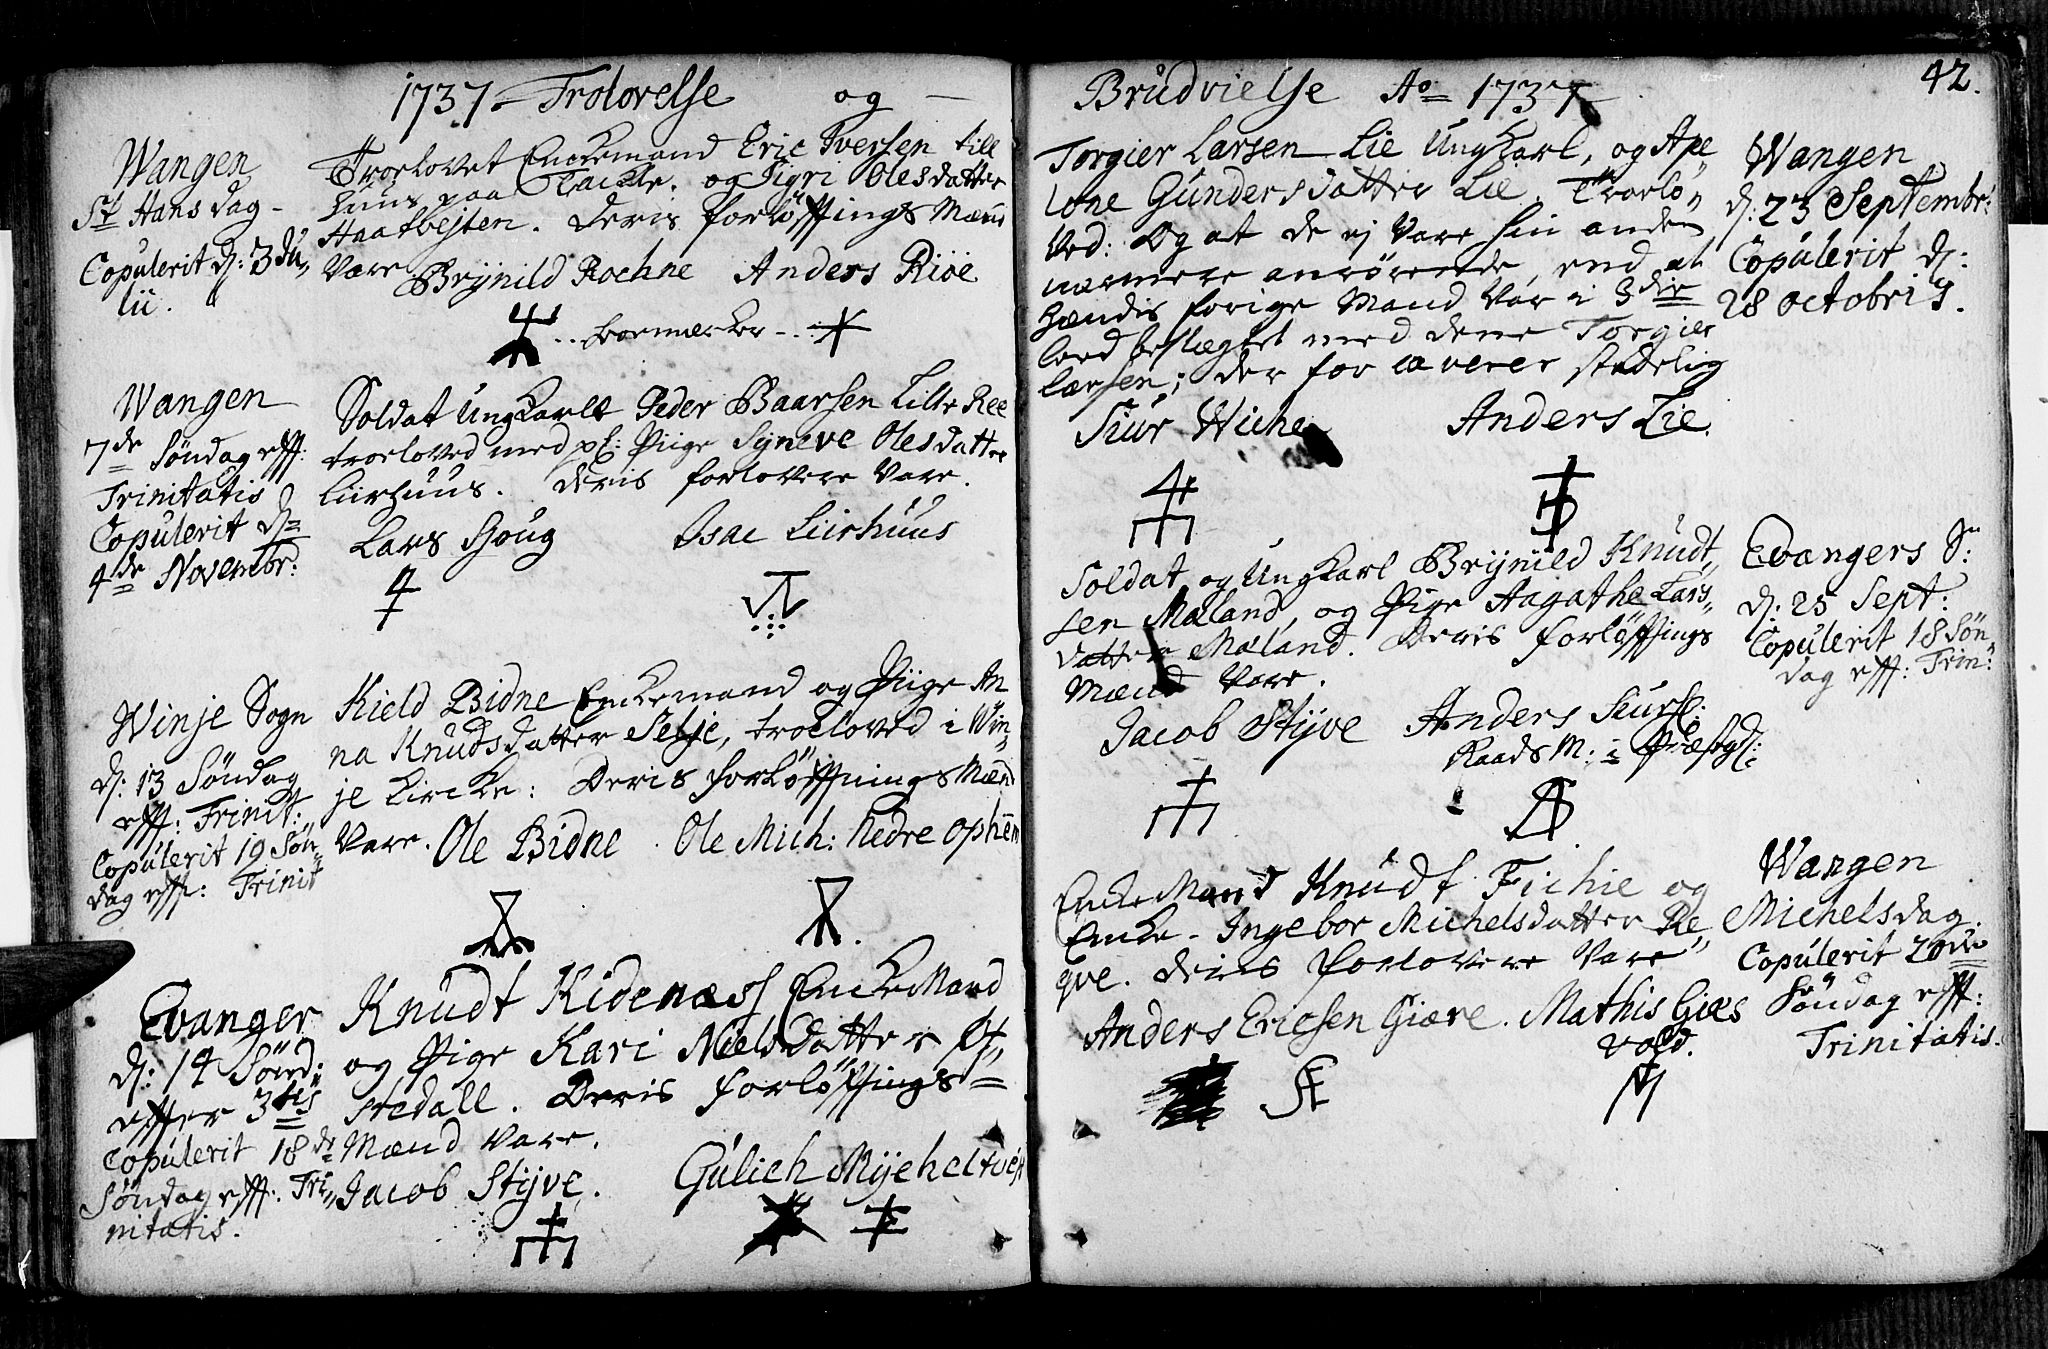 1737 Trolovelse og
Wangen
St Hans dag
Copulerit d: 3 Ju„
lii.
Troelovet Enckemand Eric Iversen till
huus paa Flackte. og Sigri Olesdatter
Haatvejten. Deris forløfftings Mænd
Vare
Brynild Rochne Anders Riøe
.. boemærker ..
Wangen
7de Søndag efft:
Trinitatis
Copulerit d=
4de Novembr:
Soldat Ungkarll Peder Baarsen Lille Ree
troeloved med p: Piige Syneve Olesdatter
Liirhuus. Deris forlovere Vare.
Lars Gjoug Isac Liirhuus
Winje Sogn
d: 13 Søndag
efft: Trinit:
Copulerit 19 Søn„
dag efft: Trinit
Kield Bidne Enckemand og Piige An
na Knudsdatter Selje, troeloved i Win„
je Kircke: Deris forløfftnings Mænd
Vare. Ole Bidne. Ole Mich: Nedre Ophēm
Evanger
d: 14 Sønd:
effter 3tis
Copulerit 18de
Søndag efft: Tri„
nitatis.
Knudt Kidenæss EnckeMand
og Pige Kari Nielsdatter Øf„
stedall. Deris forløfftings=
Mænd Vare.
Jacob Stÿve. Gulich Mÿcheltveit
Brudvielse Ao 1737
42.
Torgier Larsen Lie Ungkarl, og Ape
lone Gundersdatter Lie. Troelo„
Ved: Og at de ej Vare hin anden
nærmere anrørende, end at
hændis forige Mand Var i 3die
leed beslægtet med dene Torgier
Larsen; der for caverer stædelig
Siur Wiche Anders Lie.
Wangen
d: 23 Septembr:
Copulerit d:
28 octobris.
Soldat og Ungkarl Brÿnild Knudt„
sen Mæland, og Pige Aagathe Lars„
datter Mæland. Deris forløfftings
Mænd Vare.
Jacob Stÿve Anders Siurs:
Raads M: i Præstg:
Evangers S:
d: 25 Sept:
Copulerit 18 Søn„
dag efft: Trin:
EnckeMand Knudt Fichie og
Encke. Ingebor Michelsdatter Re„
qve. deris forlovere Vare
Anders Ericsen Giære. Mathis Gies
vold.
Wangen
Michelsdag.
Copulerit 20de
Søndag efft:
Trinitatis.